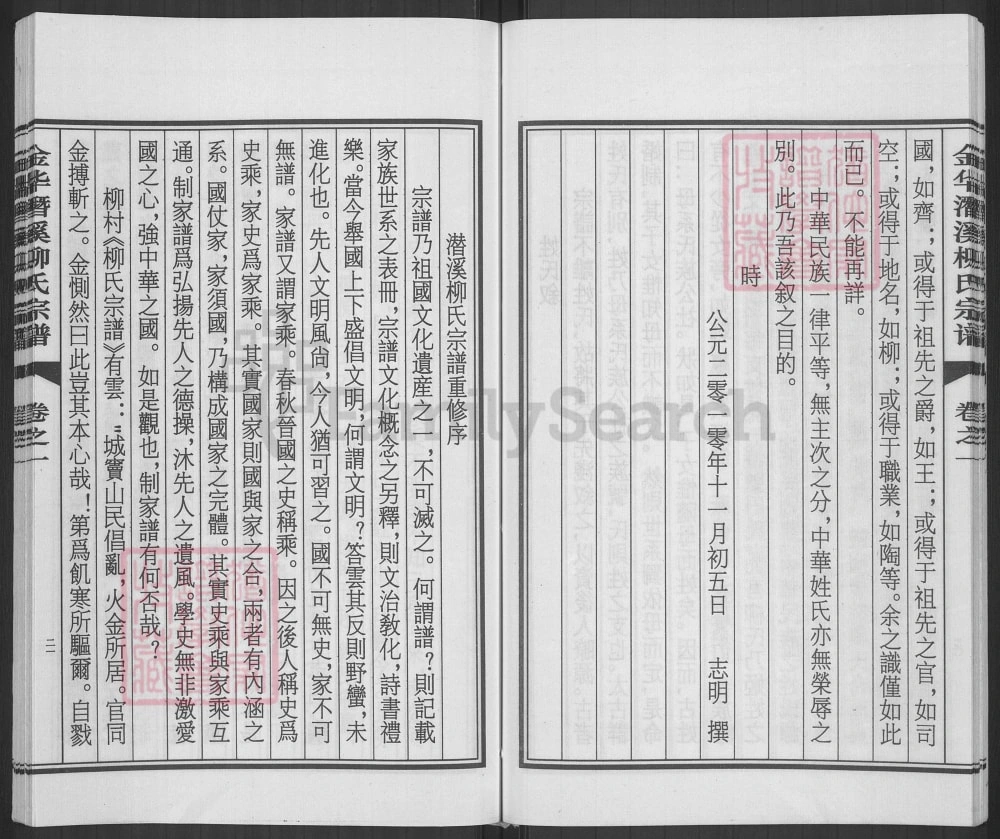 國，如齊；或得于祖先之爵，如王；或得于祖先之官，如司
空；或得于地名，如柳；或得于職業，如陶等。余之識僅如此
而已。不能再詳。
中華民族一律平等，無主次之分，中華姓氏亦無榮辱之
別。此乃吾該叙之目的。
時
公元二零一零年十一月初五日 志明 撰
金华潛溪柳氏宗谱
卷之一
潜溪柳氏宗譜重修序
宗譜乃祖國文化遺産之一，不可滅之。何謂譜？則記載
家族世系之表冊，宗譜文化概念之另釋，則文治教化，詩書禮
樂。當今舉國上下盛倡文明，何謂文明？答雲其反則野蠻，未
進化也。先人文明風尙，今人猶可習之。國不可無史，家不可
無譜。家譜又謂家乘。春秋晉國之史稱乘。因之後人稱史爲
史乘，家史爲家乘。其實國家則國與家之合，兩者有內涵之
系。國仗家，家須國，乃構成國家之完體。其實史乘與家乘互
通。制家譜爲弘揚先人之德操，沐先人之遺風。學史無非激愛
國之心，強中華之國。如是觀也，制家譜有何否哉？
柳村《柳氏宗譜》有雲："城竇山民倡亂，火金所居。官同
金搏斬之。金惻然曰此豈其本心哉！第爲飢寒所驅爾。自戮
卷之一
二
FamilySearch